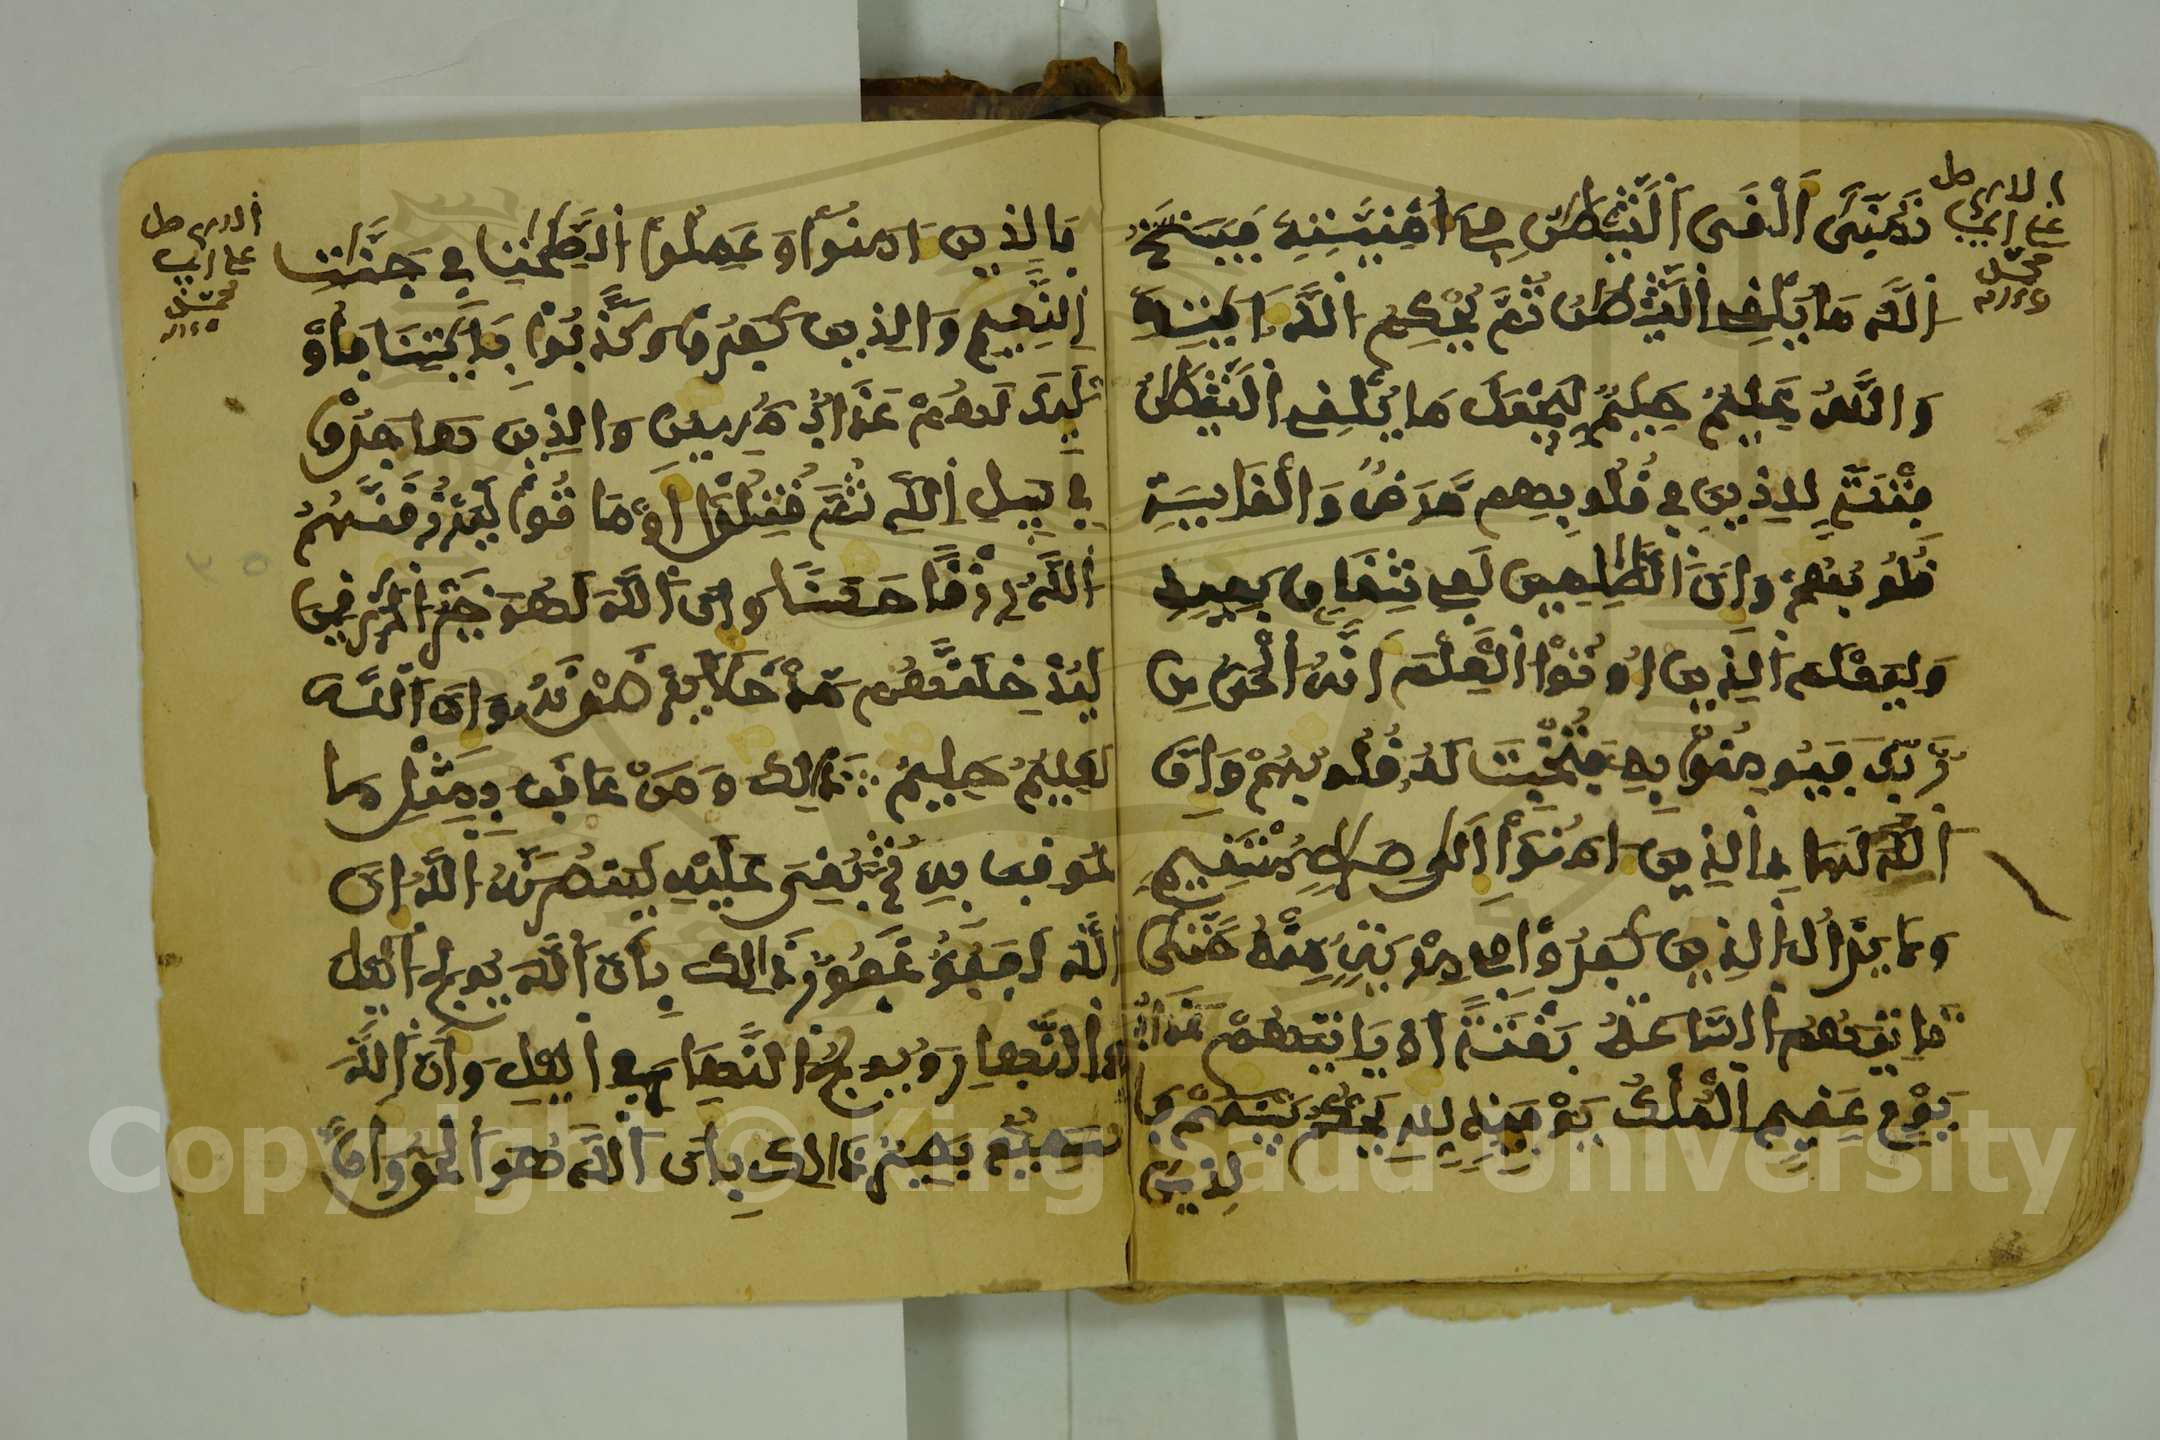 تمنى ألقى الشيطن في أمنيته فينسخ
الله ما يلقي الشيطن ثم يحكم الله ايته
والله عليم حكيم ليجعل ما يلقي الشيطن
فتنة للذين في قلوبهم مرض والقاسية
قلوبهم وان الظلمين لفي شقاق بعيد
وليعلم الذين اوتوا العلم انه الحق من
ربك فيومنوا به فتخبت له قلوبهم وان
الله لهاد الذين امنوا الى صراط مستقيم
ولا يزال الذين كفروا في مرية منه حتى
تاتيهم الساعة بغتة او ياتيهم عذاب
يوم عقيم الملك يومئذ لله يحكم بينهم فا
لذين
فالذين امنوا وعملوا الصلحت في جنت
النعيم والذين كفروا وكذبوا بايتنا فاو
ليك لهم عذاب مهين والذين هاجروا
في سبيل الله ثم قتلوا او ماتوا ليرزقنهم
الله رزقا حسنا وان الله لهو خير الرزقين
ليدخلنهم مدخلا يرضونه وان الله
لعليم حليم ذالك ومن عاقب بمثل ما
عوقب به ثم بغي عليه لينصرنه الله ان
الله لعفو غفور ذالك بأن الله يولج اليل
في النهار ويولج النهار في اليل وأن الله
سميع بصير ذالك بأن الله هو الحق وان